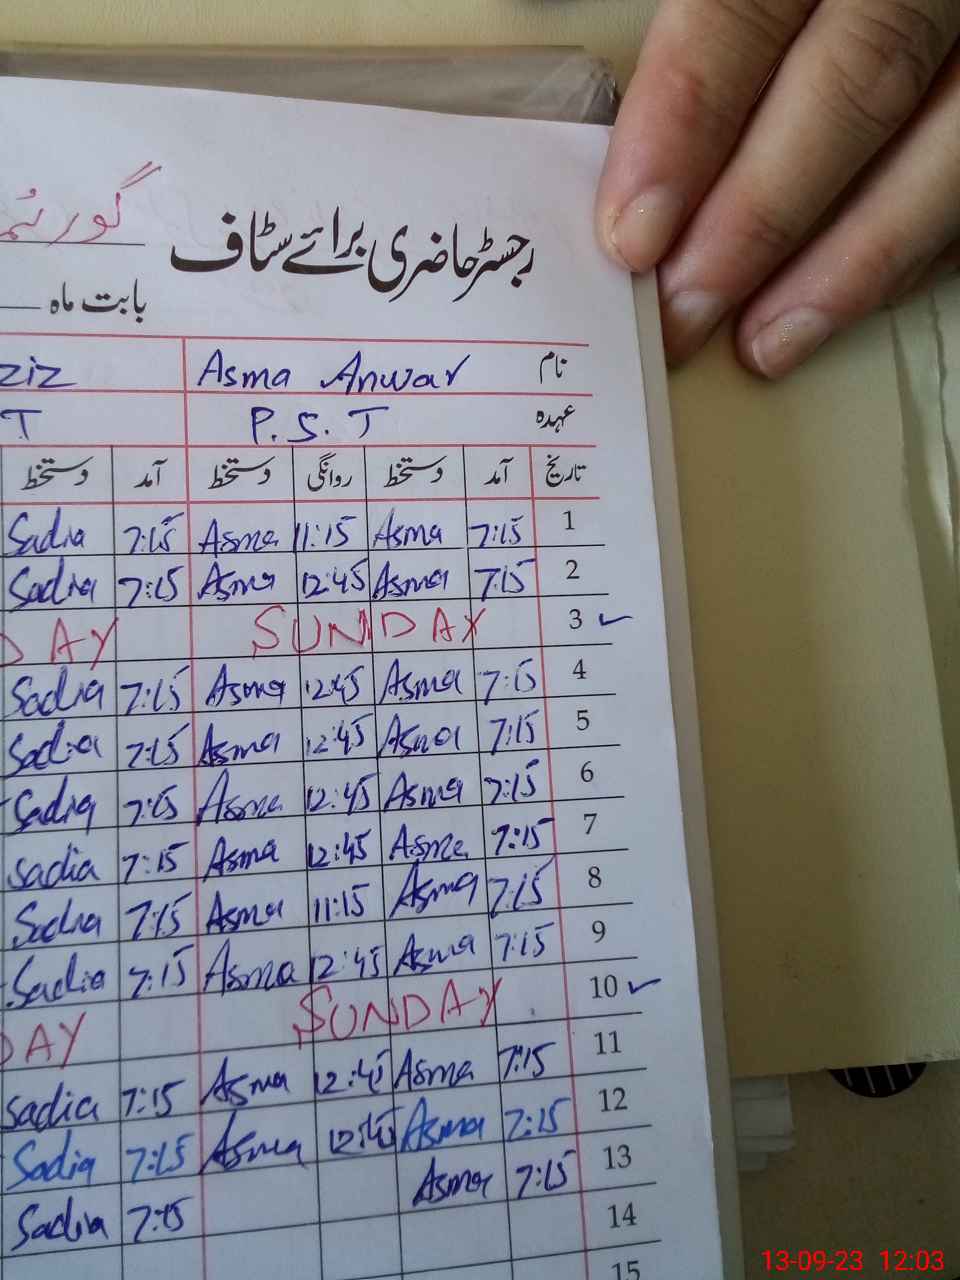 گورنم
رجسٹر حاضری برائے سٹاف
بابت ماہ
نام Asma Anwar ziz
عہدہ P.S.T T
تاریخ آمد دستخط روانگی دستخط آمد دستخط
1 7:15 Asma 11:15 Asma 7:15 Sadia
2 7:15 Asma 12:45 Asma 7:15 Sadia
3 SUNDAY DAY
4 7:15 Asma 12:45 Asma 7:15 Sadia
5 7:15 Asma 12:45 Asma 7:15 Sadia
6 7:15 Asma 12:45 Asma 7:15 Sadia
7 7:15 Asma 12:45 Asma 7:15 Sadia
8 7:15 Asma 11:15 Asma 7:15 Sadia
9 7:15 Asma 12:45 Asma 7:15 Sadia
10 SUNDAY DAY
11 7:15 Asma 12:45 Asma 7:15 Sadia
12 7:15 Asma 12:45 Asma 7:15 Sadia
13 7:15 Asma 7:15 Sadia
14
15
13-09-23 12:03